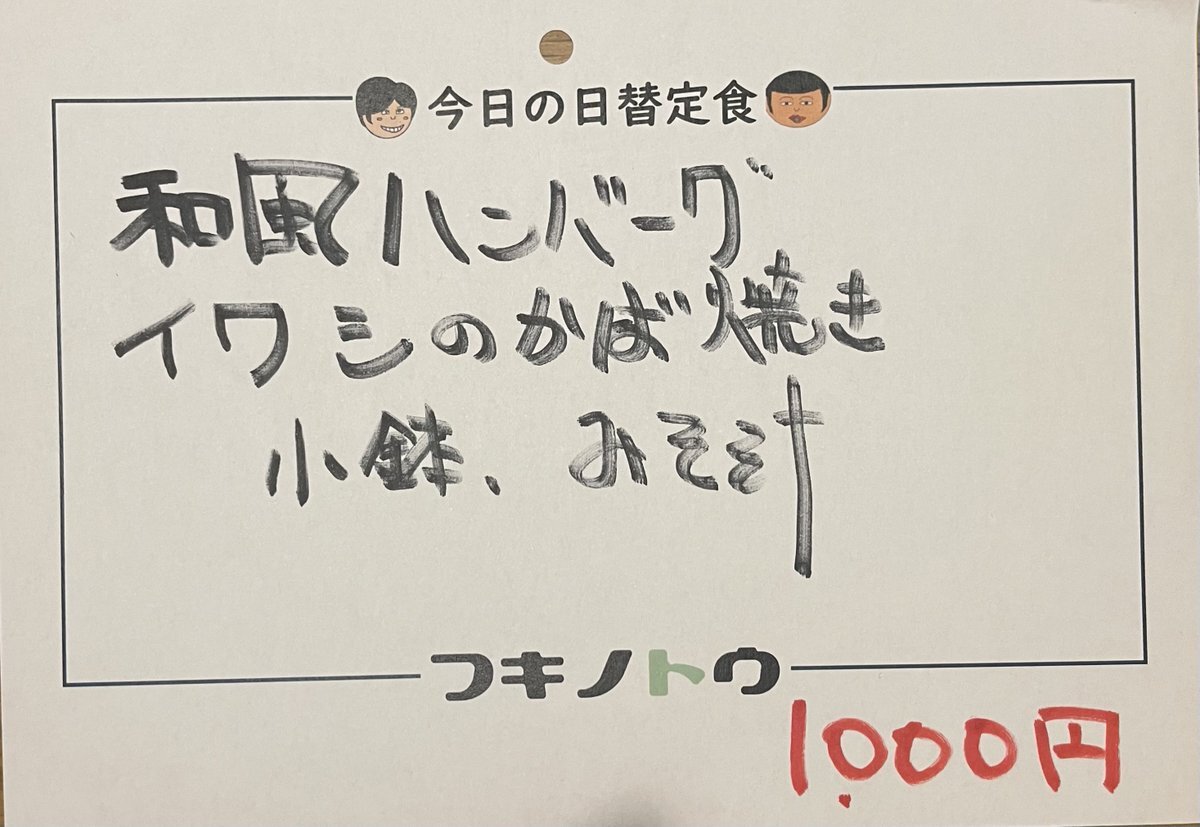 今日の日替定食
和風ハンバーグ
イワシのかば焼き
小鉢、みそ汁
フキノトウ
1,000円